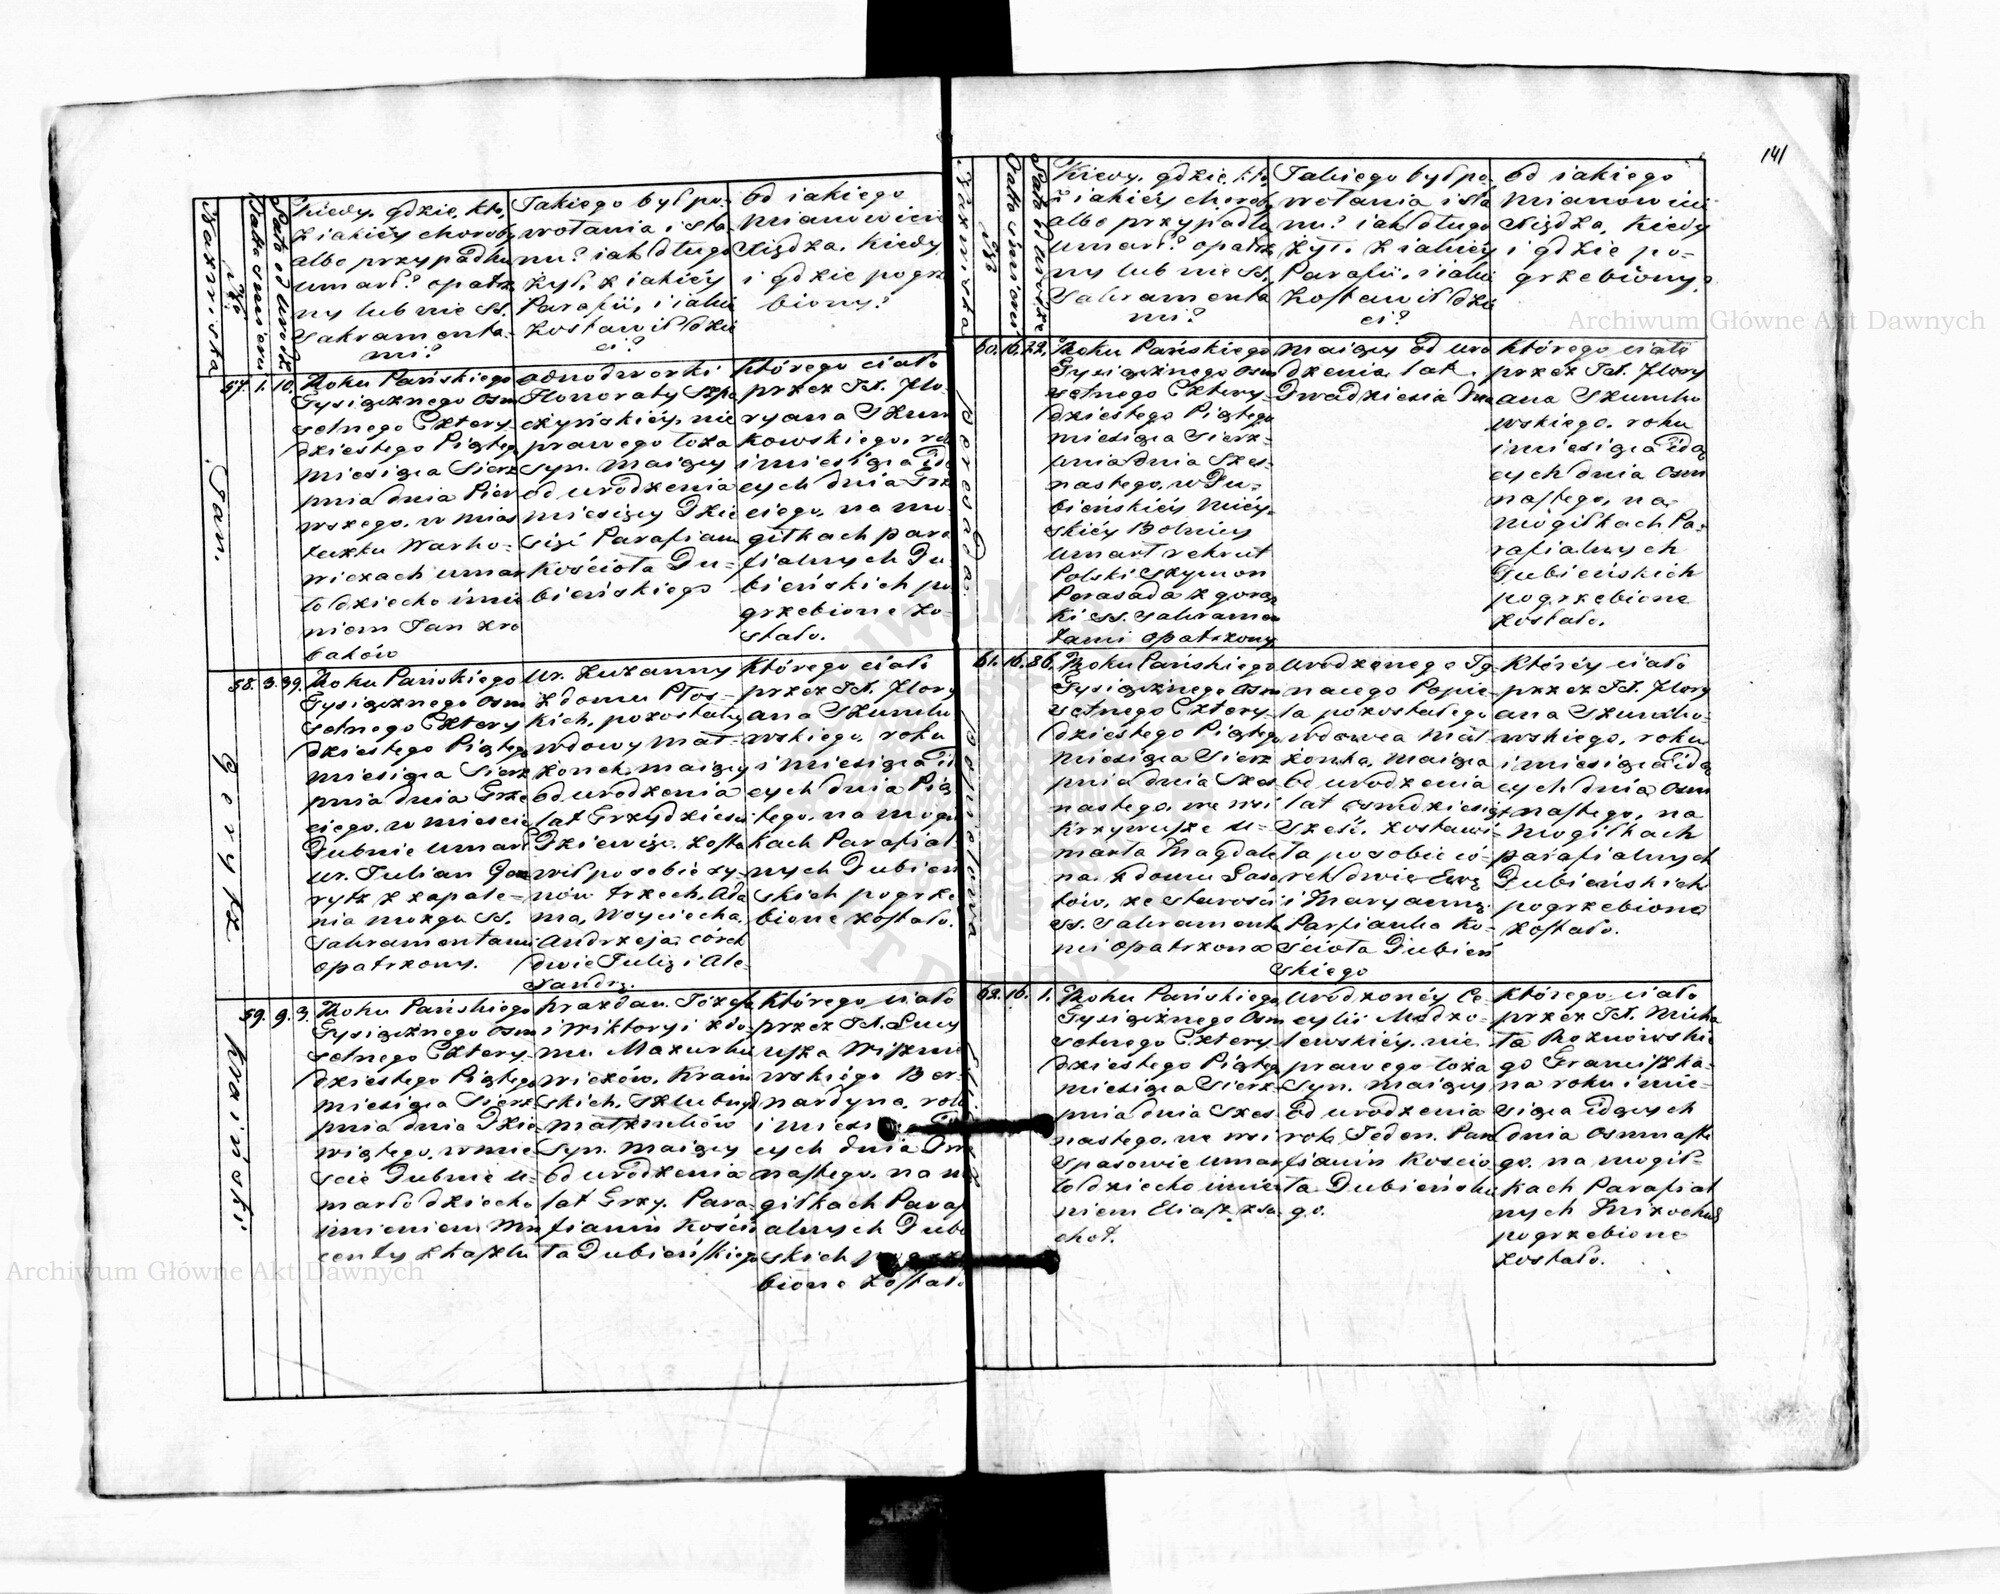 141
Nazwiska
N.
Data śmierci
Kiedy, gdzie, kto,
z iakiéy choroby
albo przypadku
umarł? opatrz
ny lub nie SS.
Sakramenta-
mi?
Jakiego był po-
wołania i sta
nu? iak długo
żył, z iakiéy
Parafii, i iakie
zostawił dzie
ci?
Od iakiego
mianowicie
Księdza, kiedy
i gdzie pogrz
biony?
57. 1. 10.
Jan.
Roku Pańskiego
Tysiącznego Osm
setnego Cztery
dziestego Piąteg
miesiąca Sierp
pnia dnia Pier
wszego, w mias
teczku Warko-
wiczach umar
ło dziecko imie
niem Jan z
odnodworki
Honoraty
nie
prawego łoża
syn. maiący
od urodzenia
miesięcy Dzie
sięć Parafian
Kościoła Du-
bieńskiego
Którego ciało
przez JX. Flo-
ryana Szum
kowskiego, rok
i miesiąca idą
cych dnia Trze
ciego, na mo-
giłkach para
fialnych Du
bieńskich po
grzebione zo-
stało.
58. 3. 39.
Gerytz
Roku Pańskiego
Tysiącznego Osm
setnego Cztery
dziestego Piąteg
miesiąca Sierp
pnia dnia Trze
ciego, w mieście
Dubnie umarł
Ur. Julian Ge
rytz z zapale-
nia mozgu SS.
Sakramentami
opatrzony.
Ur. Zuzanny
z domu
kich, pozostały
wdowy mał-
żonek, maiący
od urodzenia
lat Trzydzieści
Dziewięć. Zosta
wił po sobie sy-
nów trzech, Ada
ma, Woyciecha,
Andrzeja córek
dwie Julię i Ale-
xandrę.
Którego ciało
przez JX. Flory
ana Szumko
wskiego, roku
i miesiąca id
cych dnia Pią
tego, na mogił
kach Parafial-
nych Dubień
skich pogrze
bione zostało.
59. 9. 3.
Kraiński
Roku Pańskiego
Tysiącznego Osm
setnego Cztery-
dziestego Piątego
miesiąca Sierp
pnia dnia Dzie
wiątego, w mie
ście Dubnie u-
marło dziecko
imieniem Win
centy z kaszlu
Józefa
i Wiktoryi z do-
mu Mazurki
wiczów, Kraiń
skich, szlubnych
małżonków
syn. maiący
od urodzenia
lat Trzy. Para-
fianin Kościo
ła Dubieńskiego
Którego ciało
przez JX. Łuk
asza Wiszni
wskiego Ber-
nardyna, rok
i miesiąca
cych dnia
nastego, na mo
giłkach Paraf
ialnych Dubie
skich pogrze
bione zostało
Nazwiska
N.
Data śmierci
Kiedy, gdzie, kto,
z iakiéy chorob
albo przypadku
umarł? opatrz
ny lub nie SS.
Sakramenta
mi?
Jakiego był po-
wołania i sta
nu? iak długo
żył, z iakiéy
Parafii, i iakie
zostawił dzie
ci?
Od iakiego
mianowicie
Księdza, kiedy
i gdzie po-
grzebiony?
60. 16. 22.
Perasada.
Roku Pańskiego
Tysiącznego Osm
setnego Cztery-
dziestego Piątego
miesiąca Sierp-
pnia dnia Szes-
nastego, w Du-
bieńskiéy Miéy-
skiéy Bolnicy
umarł rekrut
Polski Szymon
Perasada z gorącz
ki SS. Sakramen
tami opatrzony
maiący od uro
dzenia lat
Dwadzieścia Dwa
Którego ciało
przez JX. Flory
ana Szumko
wskiego, roku
i miesiąca idą
cych dnia Osm
nastego, na
mogiłkach Pa-
rafialnych
Dubieńskich
pogrzebione
zostało.
61. 16. 86.
Popielowa
Roku Pańskiego
Tysiącznego Osm
setnego Cztery-
dziestego Piąteg
miesiąca Sierp
pnia dnia Szes
nastego, we wsi
Krzywusze u-
marła Magdale
na z domu
łów, ze starości
SS. Sakramenta
mi opatrzona
urodzonego Ig-
nacego Popie-
la pozostałego
wdowca mał
żonka, maiąca
od urodzenia
lat ośmdziesiąt
sześć, zostawi-
ła po sobie có-
rek dwie Ewę
i Maryannę
Parfianka Ko-
ścioła Dubień
skiego
Któréy ciało
przez JX. Flory
ana Szumko-
wskiego, roku
i miesiąca idą
cych dnia Osm
nastego, na
mogiłkach
parafialnych
Dubieńskich
pogrzebione
zostało.
62. 16. 1.
Roku Pańskiego
Tysiącznego Osm
setnego Cztery-
dziestego Piąteg
miesiąca Sierp-
pnia dnia Szes
nastego, we wsi
Spasowie umar
ło dziecko imie
niem Eliasz, z su
chot.
urodzonéy Ce
cylii Modzo-
lewskiéy, nie
prawego łoża
syn. maiący
od urodzenia
rok Jeden. Par
fianin Kościo
ła Dubieńskie
go.
Którego ciało
przez JX. Micha
ła Roznowskie
go Franciszka-
na roku i mie-
siąca idących
dnia Osmnaste
go, na mogił-
kach Parafial
nych
pogrzebione
zostało.
Archiwum Główne Akt Dawnych
Archiwum Główne Akt Dawnych